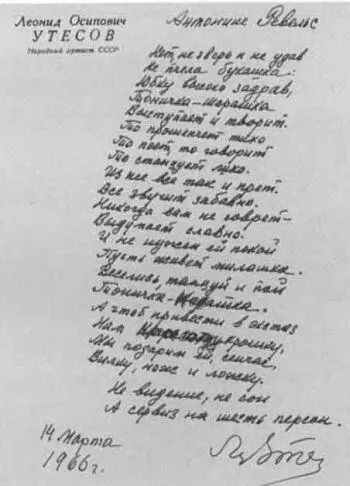 Леонид Осипович
УТЕСОВ
Народный артист СССР
Антонине Ревельс
Нет, не зверь и не удав
Не пчела букашка:
Юбку высоко задрав,
Тоничка-Морашка
Выступает и творит.
То прошепчет тихо
То поёт, то говорит
То станцует лихо.
Из нее все так и прет.
Все звучит забавно.
Никогда вам не соврет-
Выдумает славно.
И не нужен ей покой
Пусть живет милашка.
Веселись, танцуй и пой
Тоничка-
А чтоб привести в экстаз
Нам крошку,
Мы подарим ей, сейчас,
Вилку, нож и ложку.
Не видение, не сон
А сервиз на шесть персон.
14 Марта
1966 г.